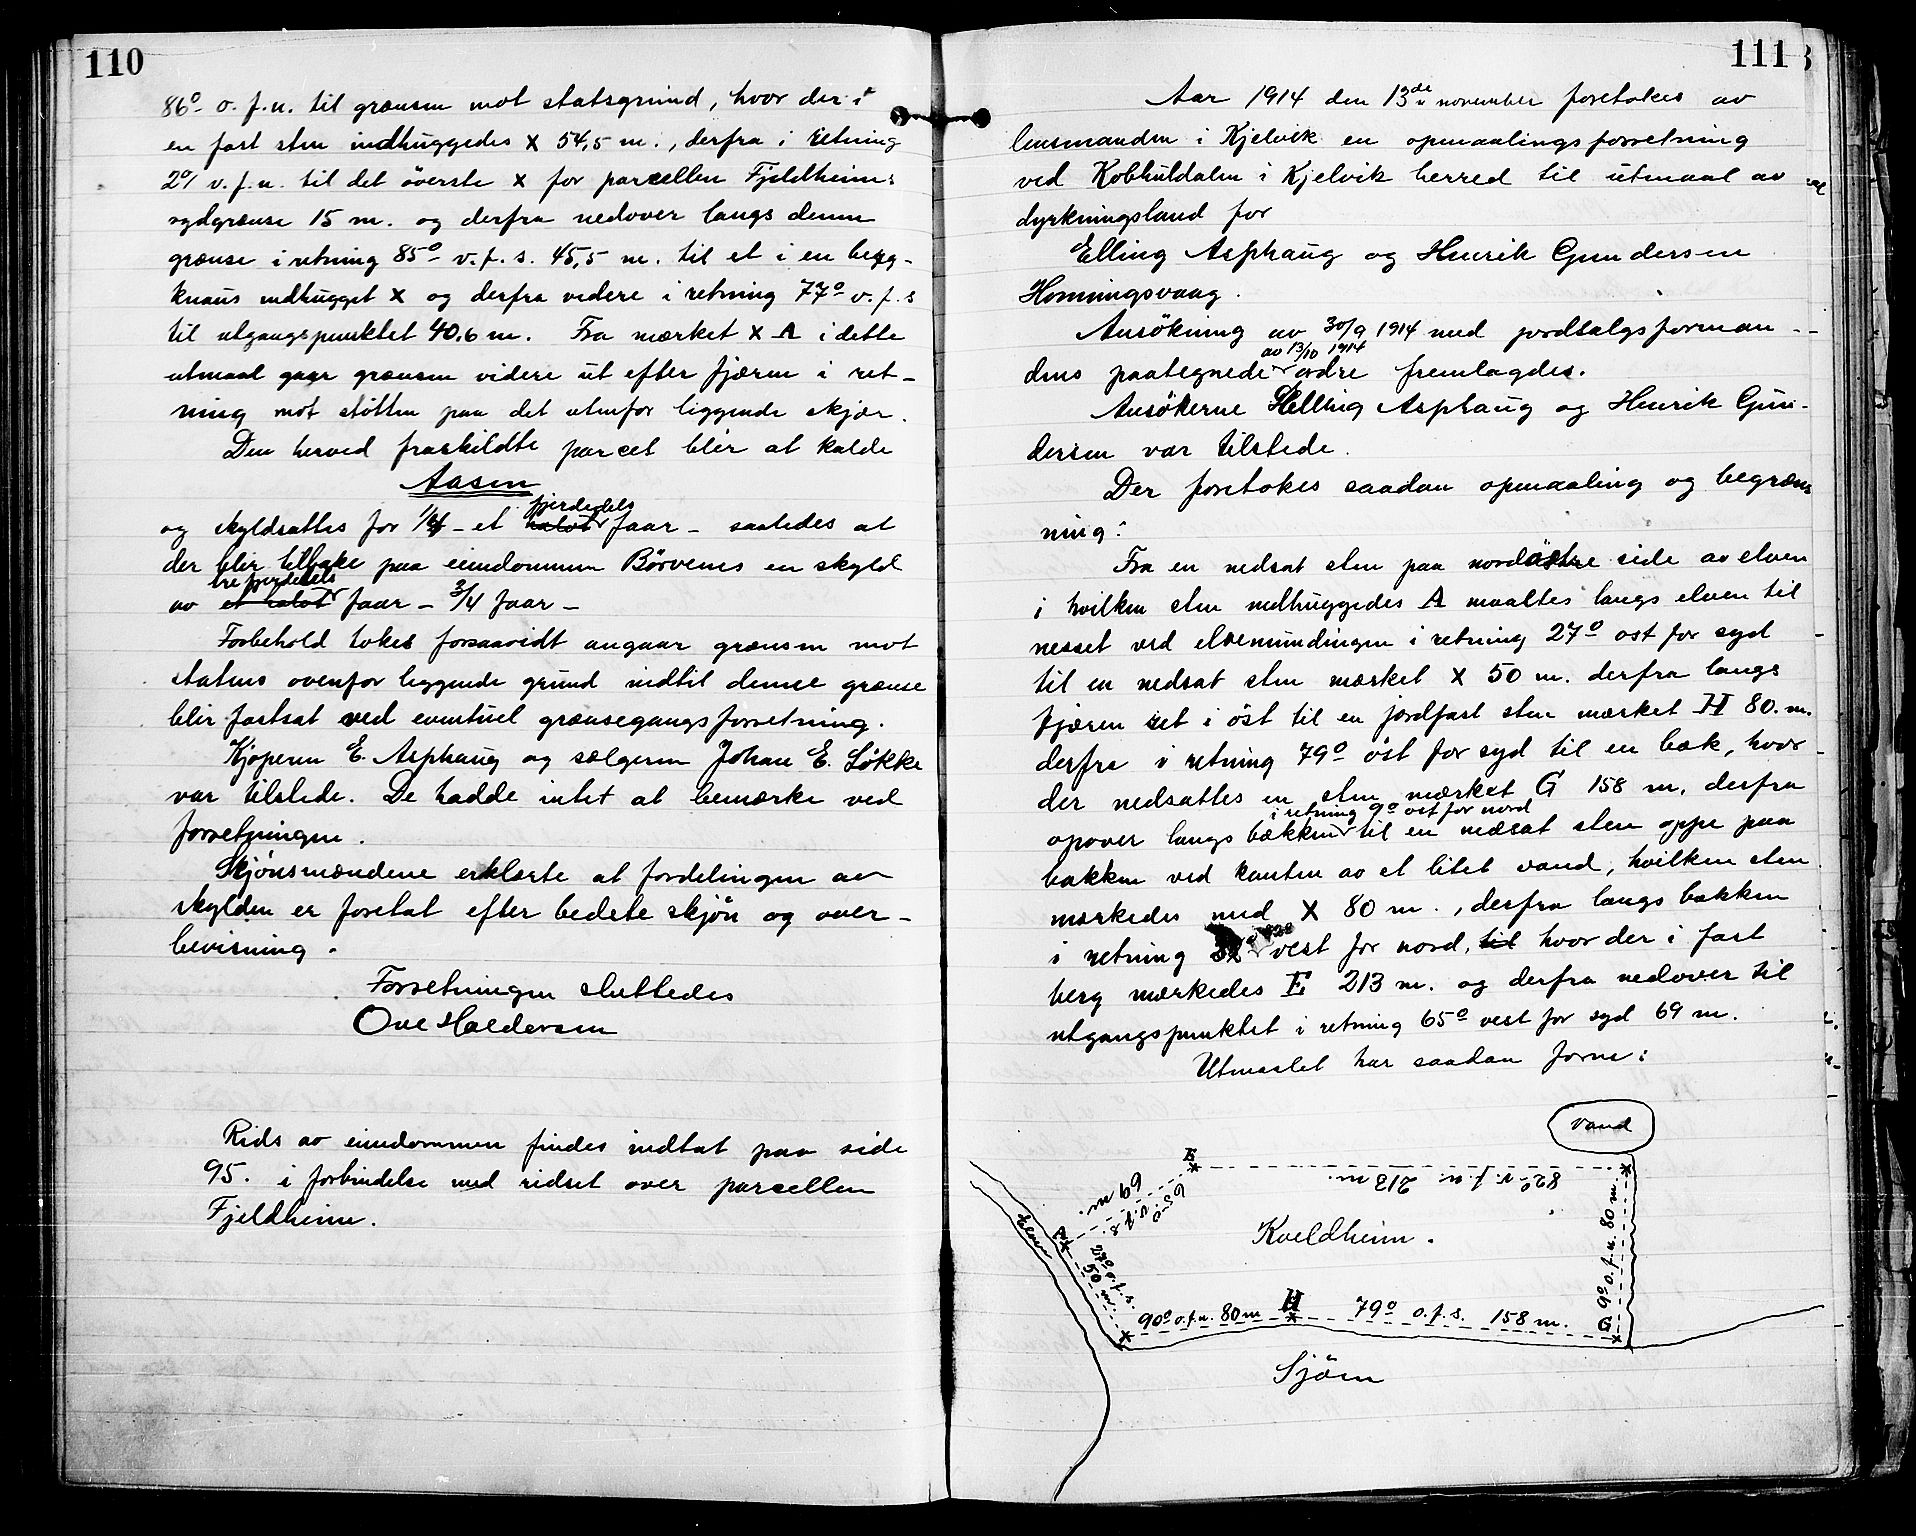 110
86° o. f. n. til grænsen mot statsgrund, hvor der i
en fast sten indhuggedes x 54,5 m., derfra i retning
2° v. f. n. til det överste x for parcellen Fjeldheims
sydgrænse 15 m. og derfra nedover langs denne
grænse i retning 85° v. f. s. 45,5 m. til et i en berg-
knaus indhugget x og derfra videre i retning 77° v. f. s
til utgangspunktet 40,6 m. Fra mærket x A i dette
utmaal gaar grænsen videre ut efter fjæren i ret-
ning mot stötten paa det utenfor liggende skjær.
Den herved fraskildte parcel blir at kalde
Aasen
fjerdedels
og skyldsattes for 1/4 - et halvt faar - saaledes at
der blir tilbake paa eiendommen Börvenes en skyld
tre fjerdedels
av et halvt faar - 3/4 faar -
Forbehold tokes forsaavidt angaar grænsen mot
statens ovenfor liggende grund indtil denne grænse
blir fastsat ved eventuel grænsegangsforretning.
Kjøperen E. Asphaug og sælgeren Johan E. Løkke
var tilstede. De hadde intet at bemærke ved
forretningen.
Skjönsmændene erklærte at fordelingen av
skylden er foretat efter bedste skjön og over-
bevisning.
Forretningen sluttedes
Ove Haldorsen
Rids av eiendommen findes indtat paa side
95. i forbindelse med ridset over parcellen
Fjeldheim.
111
Aar 1914 den 13de november foretokes av
lensmanden i Kjelvik en opmaalingsforretning
ved Kobhuldalen i Kjelvik herred til utmaal av
dyrkningsland for
Elling Asphaug og Henrik Gundersen
Honningsvaag.
Ansökning av 30/9 1914 med jordsalgsforman-
av 13/10 1914
dens paategnede ordre fremlagdes.
Ansökerne Elling Asphaug og Henrik Gun-
dersen var tilstede.
Der foretokes saadan opmaaling og begræns
ning:
Fra en nedsat sten paa nordöstre side av elven
i hvilken sten indhuggedes A maaltes langs elven til
nesset ved elvemundingen i retning 27° ost for syd
til en nedsat sten mærket x 50 m. derfra langs
fjæren ret i öst til en jordfast sten mærket H 80. m.
derfra i retning 79° öst for syd til en bæk, hvor
der nedsattes en sten mærket G 158 m. derfra
i retning 9° ost for nord
opover langs bækken til en nedsat sten oppe paa
bakken ved kanten av et litet vand, hvilken sten
mærkedes med x 80 m., derfra langs bakken
i retning 82° vest for nord, til hvor der i fast
berg mærkedes E 213 m. og derfra nedover til
utgangspunktet i retning 65° vest for syd 69 m.
Utmaalet har saadan form:
Vand
E
82° v. f. n. 213 m.
69 m.
65° v. f. s.
A
Elven
27° o. f. s.
50 m.
Kveldheim.
9° o. f. n. 80 m.
90° o. f. n. 80 m
H
79° o. f. s. 158 m.
G
Sjöen